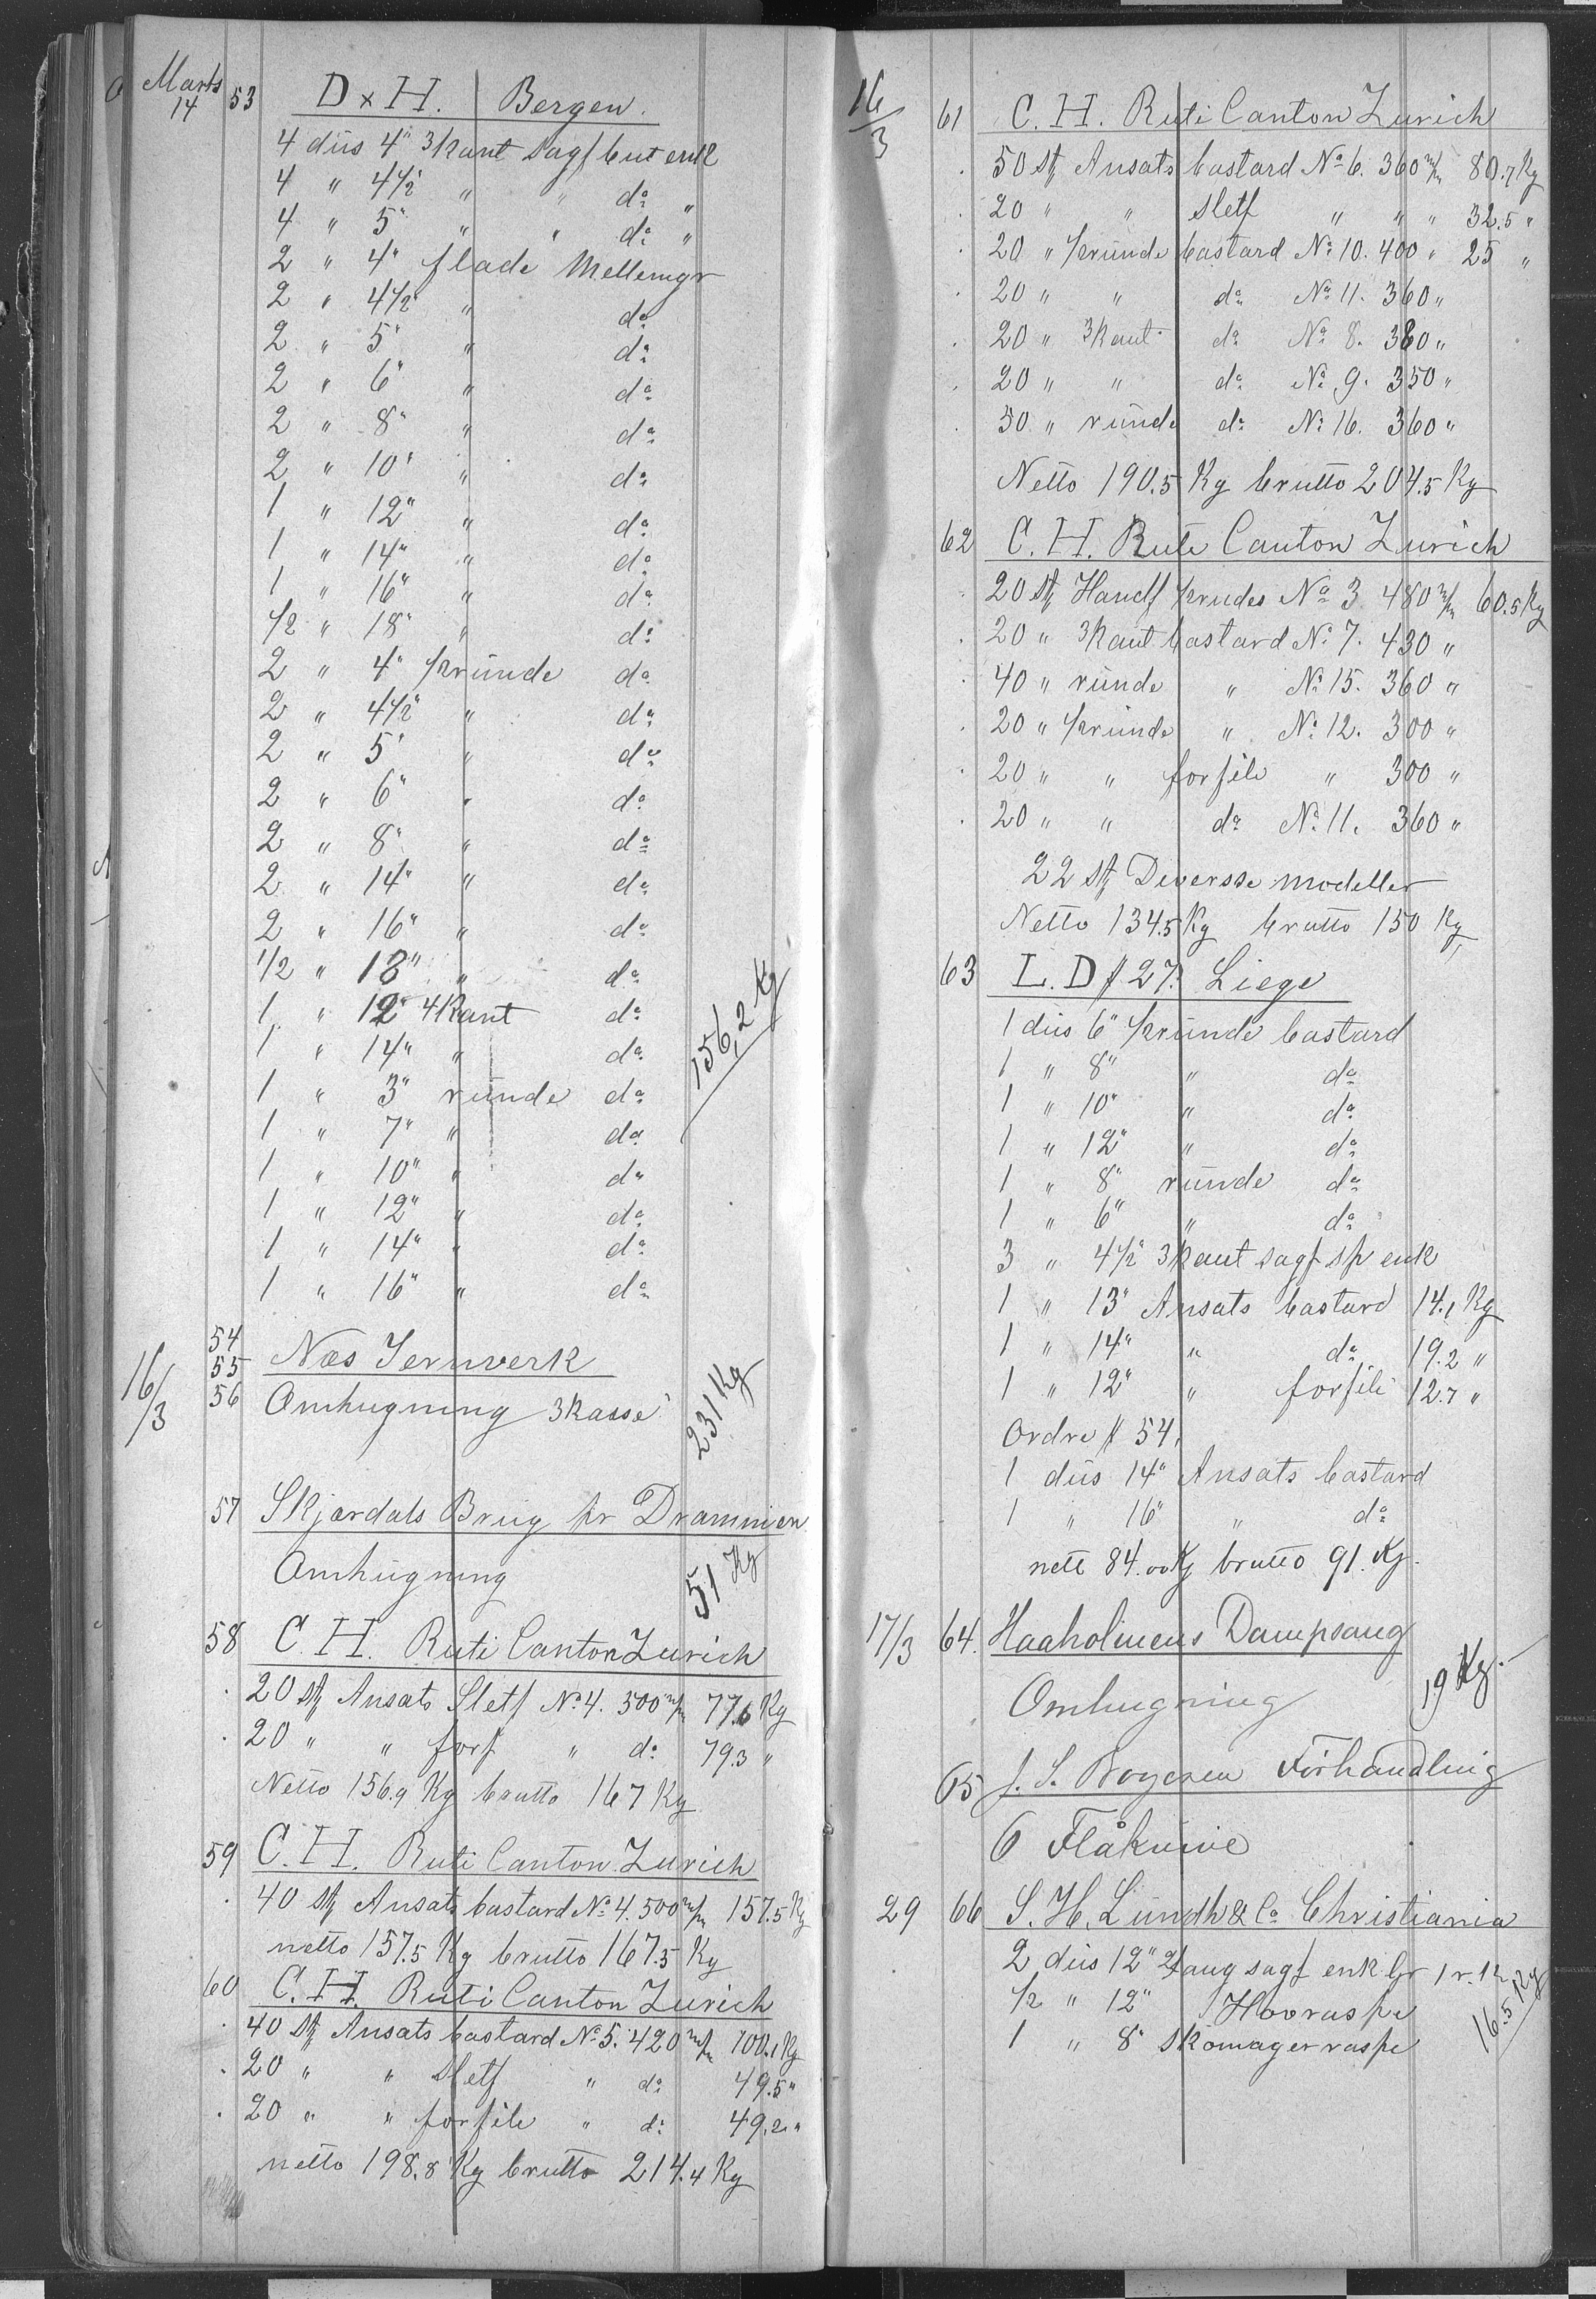 Marts 14 53 D x H. Bergen.
4 düs 4" 3kant sagf but enk
4 " 4½" " " do "
4 " 5" " " do "
2 " 4" flade Mellemgr
2 " 4½" " do
2 " 5" " do
2 " 6" " do
2 " 8" " do
2 " 10" " do
1 " 12" " do
1 " 14" " do
1 " 16" " do
1/2 " 18" " do
2 " 4" ½ründe do
2 " 4½" " do
2 " 5" " do
2 " 6" " do
2 " 8" " do
2 " 14" " do
2 " 16" " do
1/2 " 18" " do
1 " 12" 4kant do
1 " 14" " do
156,2 Kg
1 " 3" ründe do
1 " 7" " do
1 " 10" " do
1 " 12" " do
1 " 14" " do
1 " 16" " do
54
16/3 55 Næs Jernverk
56 Omhugning 3kasse 231 Kg
57 Skjærdals Brüg pr Drammen
Omhügning 51 Kg
58 C. H. Ruti Canton Zurich
20 stk Ansats Sletf No 4. 500 m/m 77.6 Kg
20 " " forf " do 79.3 "
Netto 156.9 Kg brutto 167 Kg
59 C. H. Ruti Canton Zurich
40 stk Ansats bastard No 4. 500 m/m 157.5 Kg
netto 157.5 Kg brutto 167.5 Kg
60 C. H. Ruti Canton Zurich
40 stk Ansats bastard No 5. 420 m/m 100.1 Kg
20 " " sletf " do 49.5 "
20 " " forfile " do 49.2 "
netto 198.8 Kg brutto 214.4 Kg
16/3 61 C. H. Ruti Canton Zurich
50 stk Ansats bastard No 6. 360 m/m 80.7 Kg
20 " " sletf " " " 32.5 "
20 " ½ründe bastard No 10. 400 " 25 "
20 " " do No 11. 360 "
20 " 3kant do No 8. 380 "
20 " " do No 9. 350 "
50 " ründe do No 16. 360 "
Netto 190.5 Kg brutto 204.5 Kg
62 C. H. Ruti Canton Zurich
20 stk Handf ½rudes No 3 480 m/m 60.5 Kg
20 " 3kant bastard No 7. 430 "
40 " ründe " No 15. 360 "
20 " ½ründe " No 12. 300 "
20 " " forfile " 300 "
20 " " do No 11. 360 "
22 stk Diversse modeller
Netto 134.5 Kg brutto 150 Kg
63 L. D # 27. Liege
1 düs 6" ½ründe bastard
1 " 8" " do
1 " 10" " do
1 " 12" " do
1 " 8" ründe do
1 " 6" " do
3 " 4½" 3kant sagf sp enk
1 " 13" Ansats bastard 14.1 Kg
1 " 14" " do 19.2 "
1 " 12" " forfile 12.7 "
Ordre # 54,
1 düs 14" Ansats bastard
1 " 16" " do
nett 84.00 Kg brutto 91. Kg.
17/3 64. Haaholmens Dampsaug
Omhugning 19 Kg.
65 J. S. Forhandling
6 Flåknive
29 66 S. H. Lündh & Co Christiania
2 düs 12" sagf enk gr 1 r.
1/2 " 12" Hovraspe
1 " 8" Skomager raspe 16.5 Kg